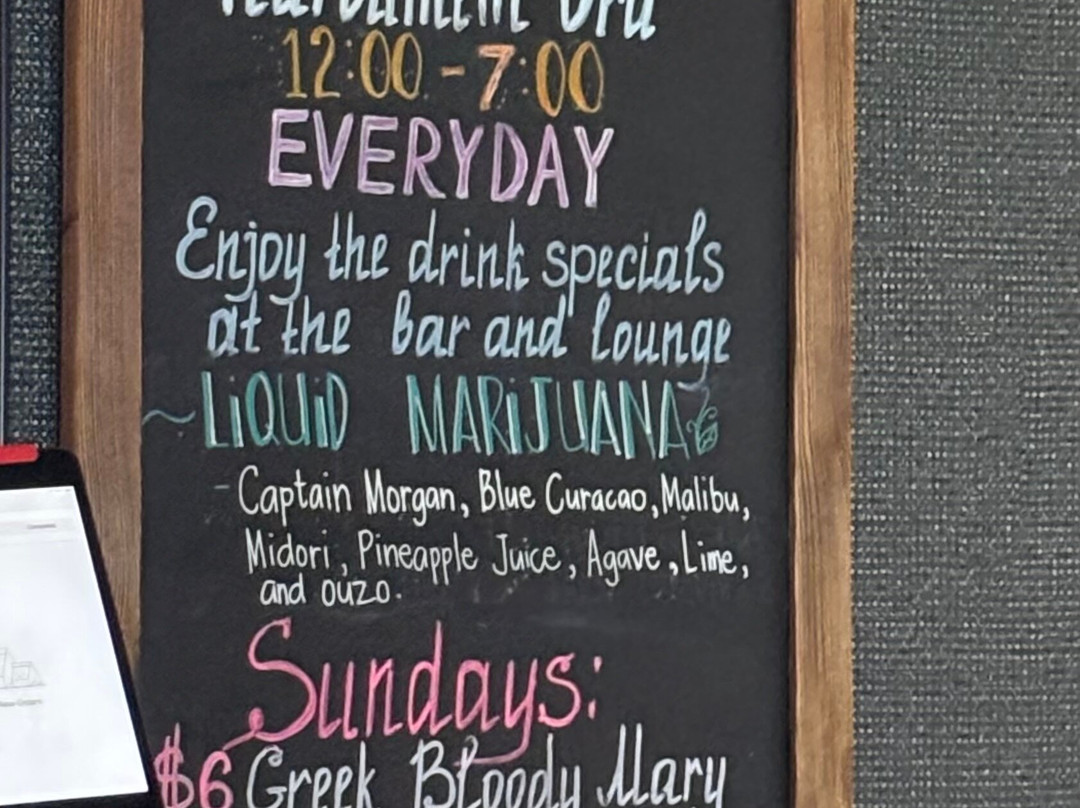 12:00 - 7:00
EVERYDAY
Enjoy the drink specials
at the bar and lounge
~ LiQUiD MARiJUANA
- Captain Morgan, Blue Curacao, Malibu,
Midori, Pineapple Juice, Agave, Lime,
and ouzo.
Sundays:
$6 Greek Bloody Mary